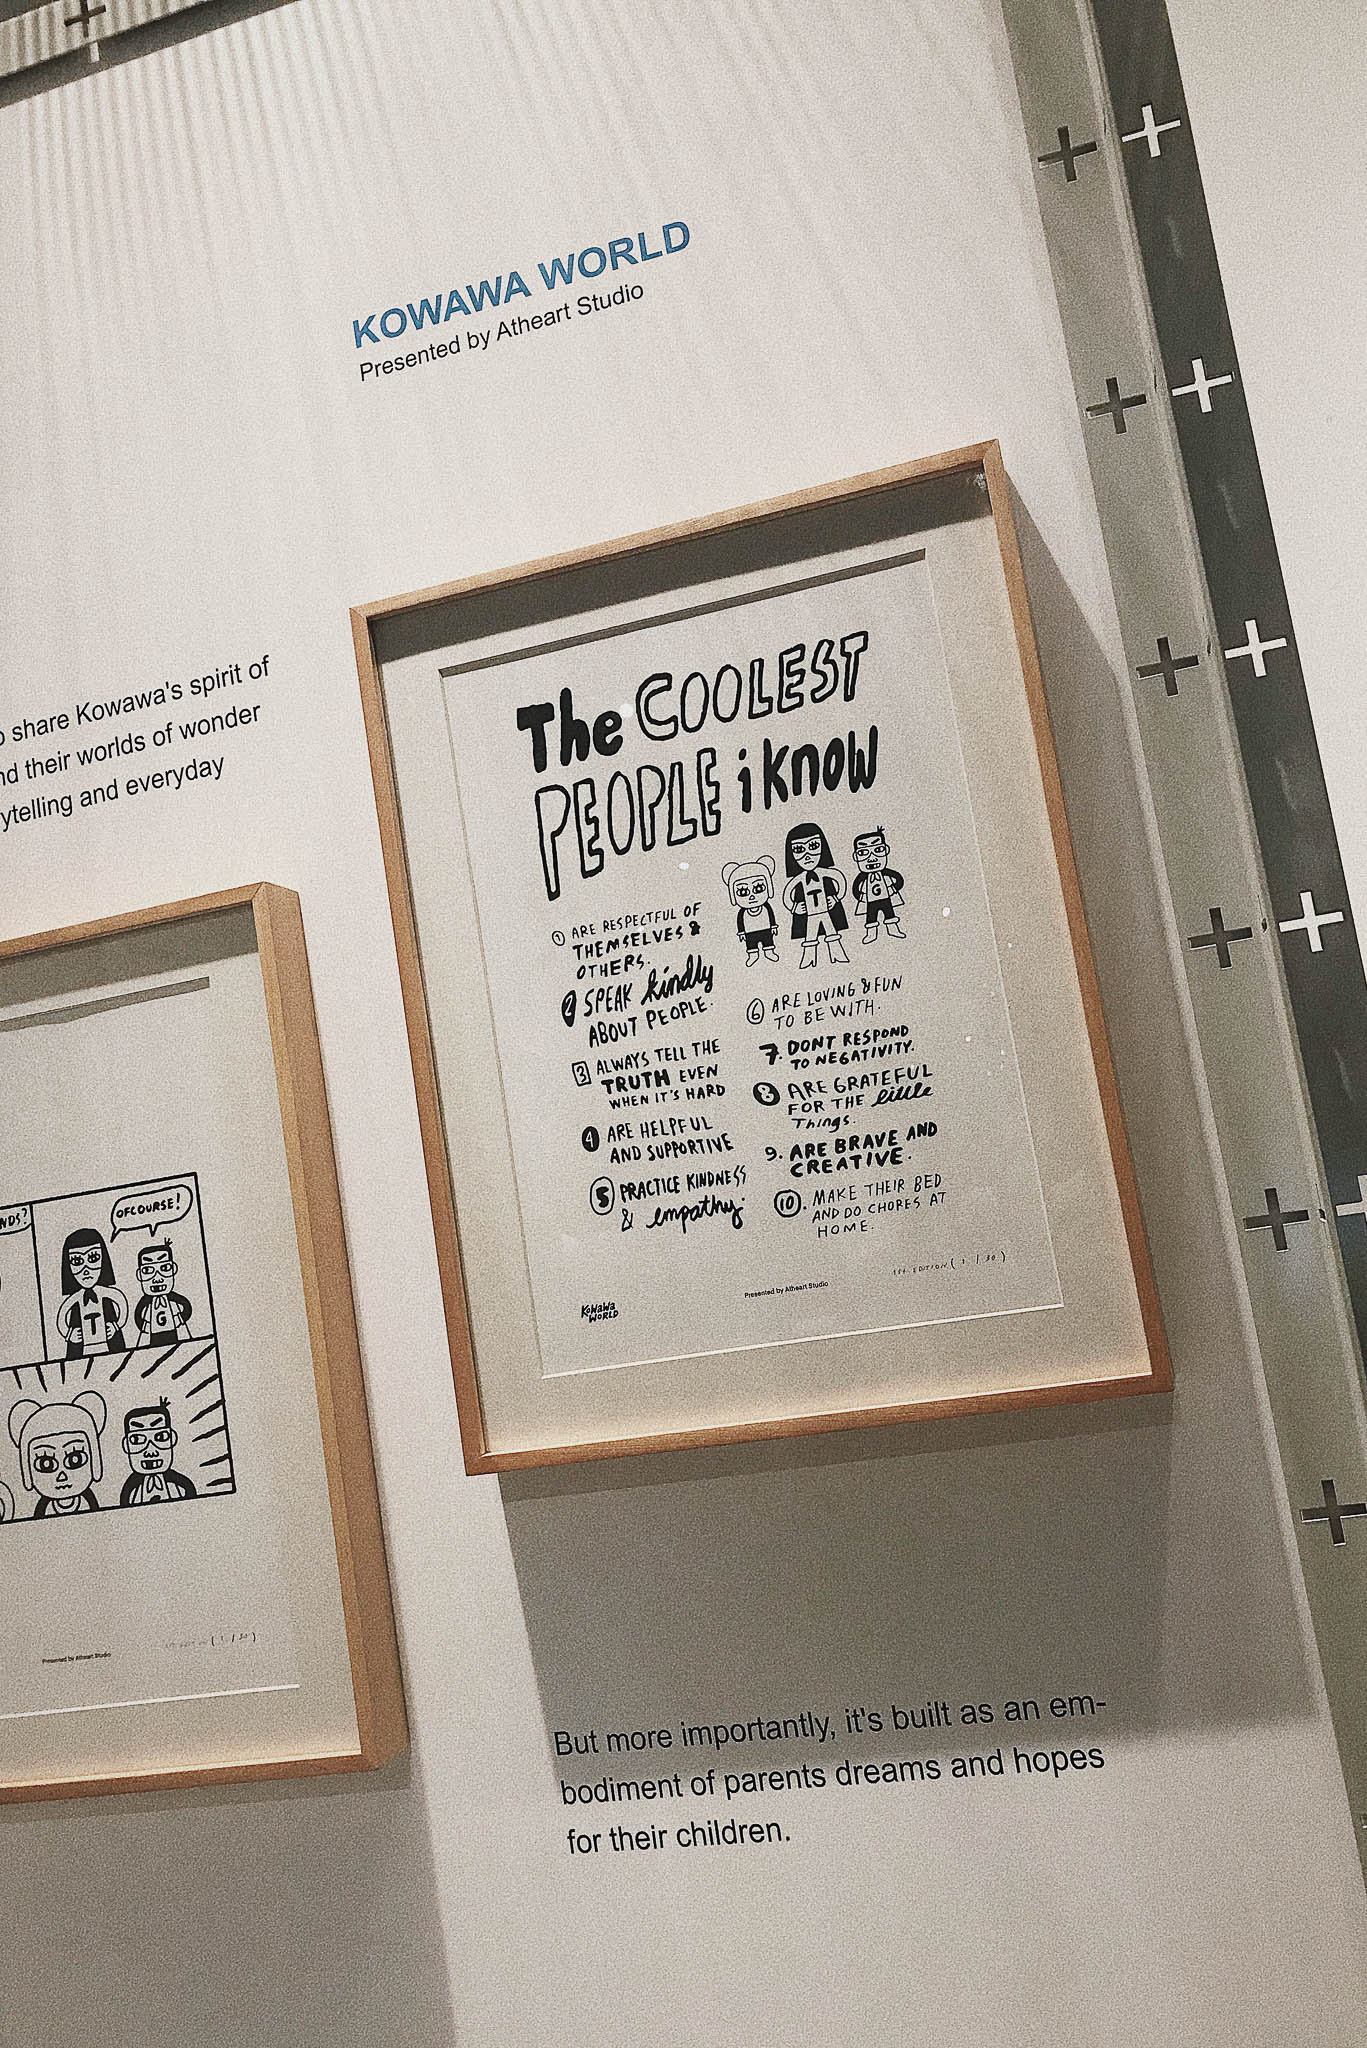 KOWAWA WORLD
Presented by Atheart Studio
share Kowawa's spirit of
their worlds of wonder
and everyday
The COOLEST
PEOPLE i know
T
G
1 ARE RESPECTFUL OF
THEMSELVES &
OTHERS.
2 SPEAK kindly
ABOUT PEOPLE.
3 ALWAYS TELL THE
TRUTH EVEN
WHEN IT'S HARD
4 ARE HELPFUL
AND SUPPORTIVE
5 PRACTICE KINDNESS
& empathy
6 ARE LOVING & FUN
TO BE WITH.
7. DONT RESPOND
TO NEGATIVITY.
8 ARE GRATEFUL
FOR THE little
Things.
9. ARE BRAVE AND
CREATIVE.
10. MAKE THEIR BED
AND DO CHORES AT
HOME.
KOWAWA
WORLD
Presented by Atheart Studio
1st EDITION ( 1 / 30 )
OFCOURSE!
T
G
Presented by Atheart Studio
But more importantly, it's built as an em-
bodiment of parents dreams and hopes
for their children.